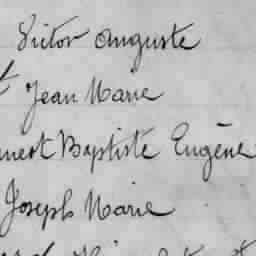 Victor Auguste
Jean Marie
Baptiste Eugène
Joseph Marie